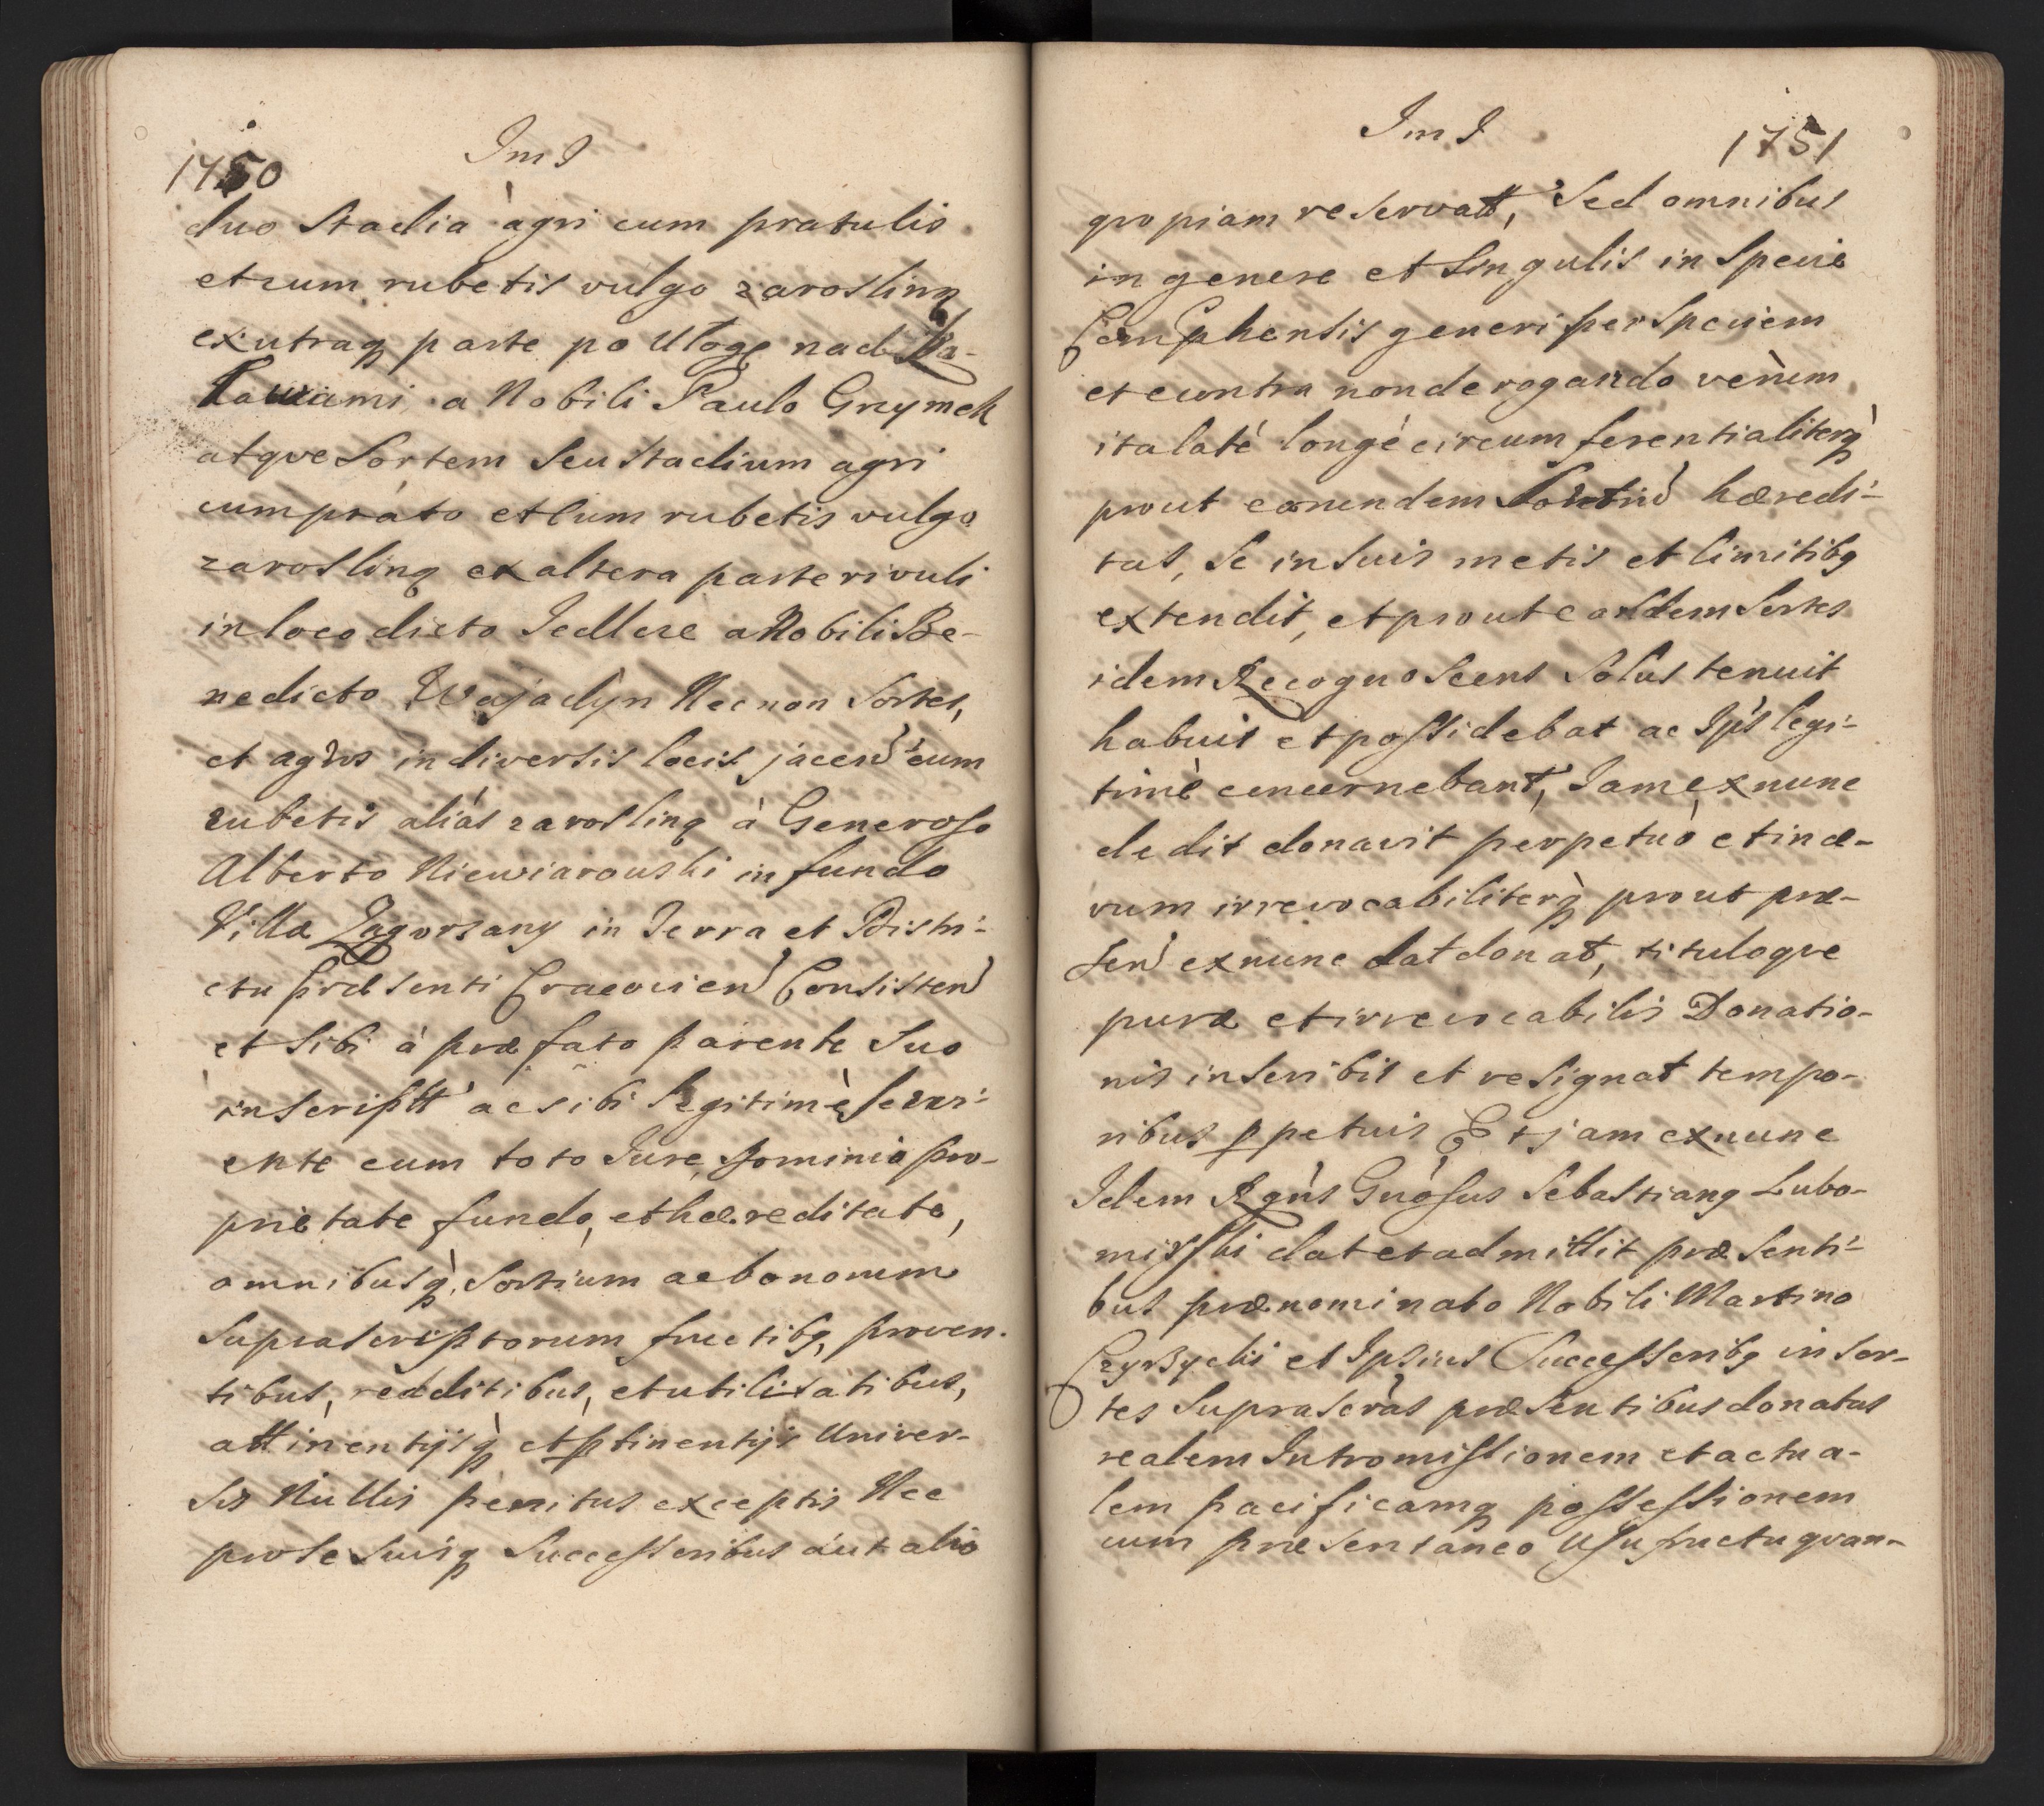 1750
Im I
duo Stadia agri cum pratulis
et cum rubetis vulgo zaroslinq
ex utraq parte po Ulogę nad Sta-
a Nobili Paulo Grzymek
atqve Sortem Seu Stadium agri
cum prato et Cum rubetis vulgo
zaroslinq ex altera parte rivuli
in loco dicto a Nobili Be-
nedicto Wajadyn Nec non Sortes,
et agros in diversis locis jacen cum
rubetis aliás zaroslinq à Generoso
Alberto Niewiarouski in fundo
Villæ Zagorzany in Terra et Distri-
ctu præsenti Cracovien Consisten
et Sibi à præfato parente Suo
inscriptt ac sibi legitimè servi-
ente cum toto Jure, Dominio pro-
prietate fundo, et hæreditate,
omnibusq, Sortium ac bonorum
Suprascriptorum fructibq, proven-
tibus, redditibus, et utilitatibus,
attinentijsq et ptinentijs Univer-
sis Nullis penitus exceptis Nec
pro se suisq Successoribus aut alio
Im I
1751
qvopiam reservatt, Sed omnibus
in genere et Singulis in Specie
Comphensis generi per Speciem
et econtra non derogando verùm
ita laté longè circumferentialiterq
prout earundem Sortiu hæredi-
tas, Se in Suis metis et limitibq
extendit, et prout easdem Sortes
idem Recognoscens Solus tenuit
habuit et possidebat ac Ips legi-
timè concernebant, Jam ex nunc
dedit donavit perpetuò et in æ-
vum irrevocabiliterq prout præ-
sen ex nunc dat donat, tituloqve
puræ et irrevocabilis Donatio-
nis inscribit et resignat tempo-
ribus ppetuis Et jam ex nunc
Idem Rgns Gnosus Sebastianq Lubo-
misski dat et admittit præsenti-
bus prænominato Nobili Martino
Przybycki et Ipsius Successoribq in Sor-
tes Suprascras præsentibus donatas
realem Intromissionem et actua-
lem pacificamq possessionem
cum præsentaneo Usufructu qvan-